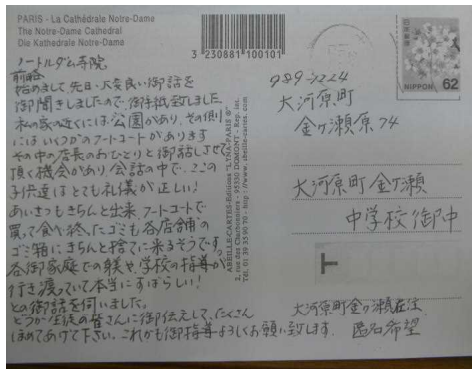 PARIS - La Cathédrale Notre-Dame
The Notre-Dame Cathedral
Die Kathedrale Notre-Dame
3 230881 100101
ノートルダム寺院
前略
始めまして先日、大変良い御話を
御聞きしましたので、御手紙致しました
私の家の近くには公園があり、その側
にはいくつかのフートコートがあります
その中の店長のおひとりと御話しさせて
頂く機会があり、会話の中で、ここの
子供達はとても礼儀が正しい!
あいさつもきちんと出来、フートコートで
買って食べ終ったゴミも各店舗の
ゴミ箱にきちんと捨てに来るそうです。
各御家庭での躾や、学校の指導が
行き渡っていて本当にすばらしい!
との御話を伺いました。
どうか生徒の皆さんに御伝えして、たくさん
ほめてあげて下さい。これからも御指導よろしくお願い致します。
ABEILLE-CARTES-Editions "LYNA-PARIS ®"
2, rue des Charbonniers - 95330 DOMONT - Rep. Inc.
Tél. 01 39 35 90 70 - http://www.abeille-cartes.com
日本郵便
NIPPON 62
989-1224
大河原町
金ヶ瀬原74
大河原町金ヶ瀬
中学校御中
T
大河原町金ヶ瀬在住
匿名希望